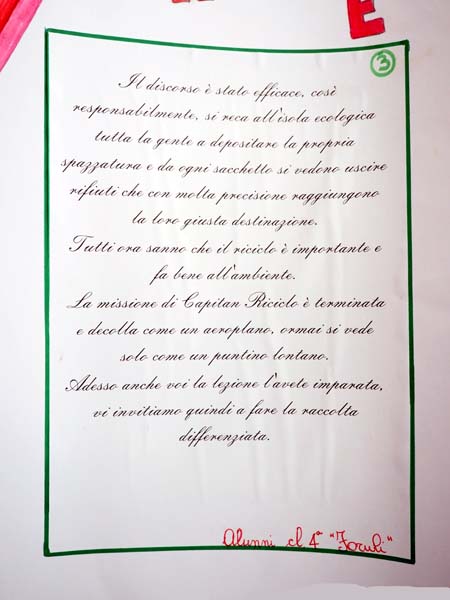 E
3
Il discorso è stato efficace, così
responsabilmente, si reca all'isola ecologica
tutta la gente a depositare la propria
spazzatura e da ogni sacchetto si vedono uscire
rifiuti che con molta precisione raggiungono
la loro giusta destinazione.
Tutti ora sanno che il riciclo è importante e
fa bene all'ambiente.
La missione di Capitan Riciclo è terminata
e decolla come un aeroplano, ormai si vede
solo come un puntino lontano.
Adesso anche voi la lezione l'avete imparata,
vi invitiamo quindi a fare la raccolta
differenziata.
Alunni cl 4ª "Foruli"